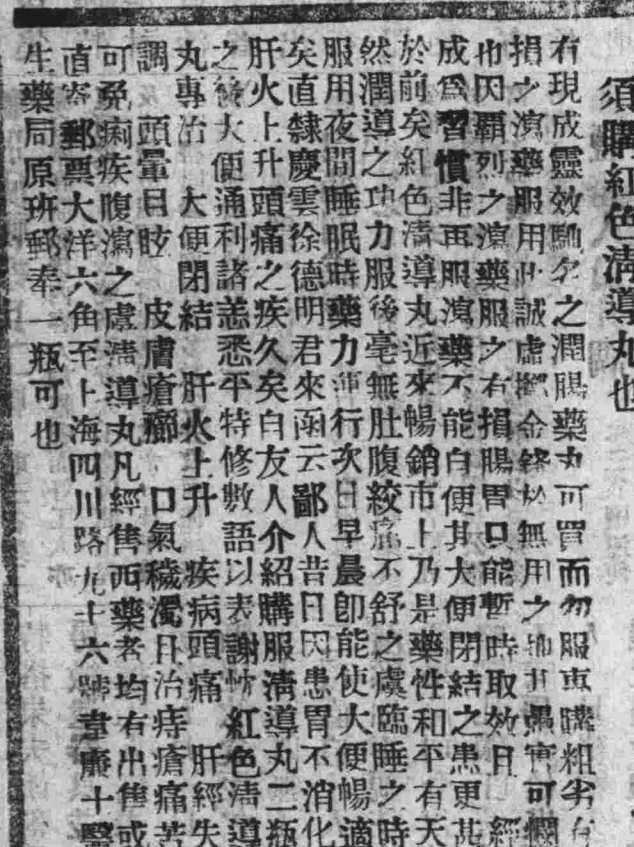 須購紅色清導丸也
有現成靈效馳名之潤腸藥丸可買而勿服車購粗劣有
損之瀉藥服用此誠虛擲金錢於無用之地其愚實可憫
也因霸烈之瀉藥服之有損腸胃只能暫時取效且一經
成爲習慣非再服瀉藥不能自便其大便閉結之患更甚
於前矣紅色清導丸近來暢銷市上乃是藥性和平有天
然潤導之功力服後毫無肚腹絞痛不舒之虞臨睡之時
服用夜間睡眠時藥力運行次日早晨卽能使大便暢適
矣直隸慶雲徐德明君來函云鄙人昔日因患胃不消化
肝火上升頭痛之疾久矣自友人介紹購服清導丸二瓶
之後大便通利諸恙悉平特修數語以表謝忱紅色清導
丸專治 大便閉結 肝火上升 疾病頭痛 肝經失
調 頭暈目眩 皮膚瘡癤 口氣穢濁且治痔瘡痛苦
可免痢疾腹瀉之虞清導丸凡經售西藥者均有出售或
直寄郵票大洋六角至上海四川路九十六號韋廉士醫
生藥局原班郵奉一瓶可也